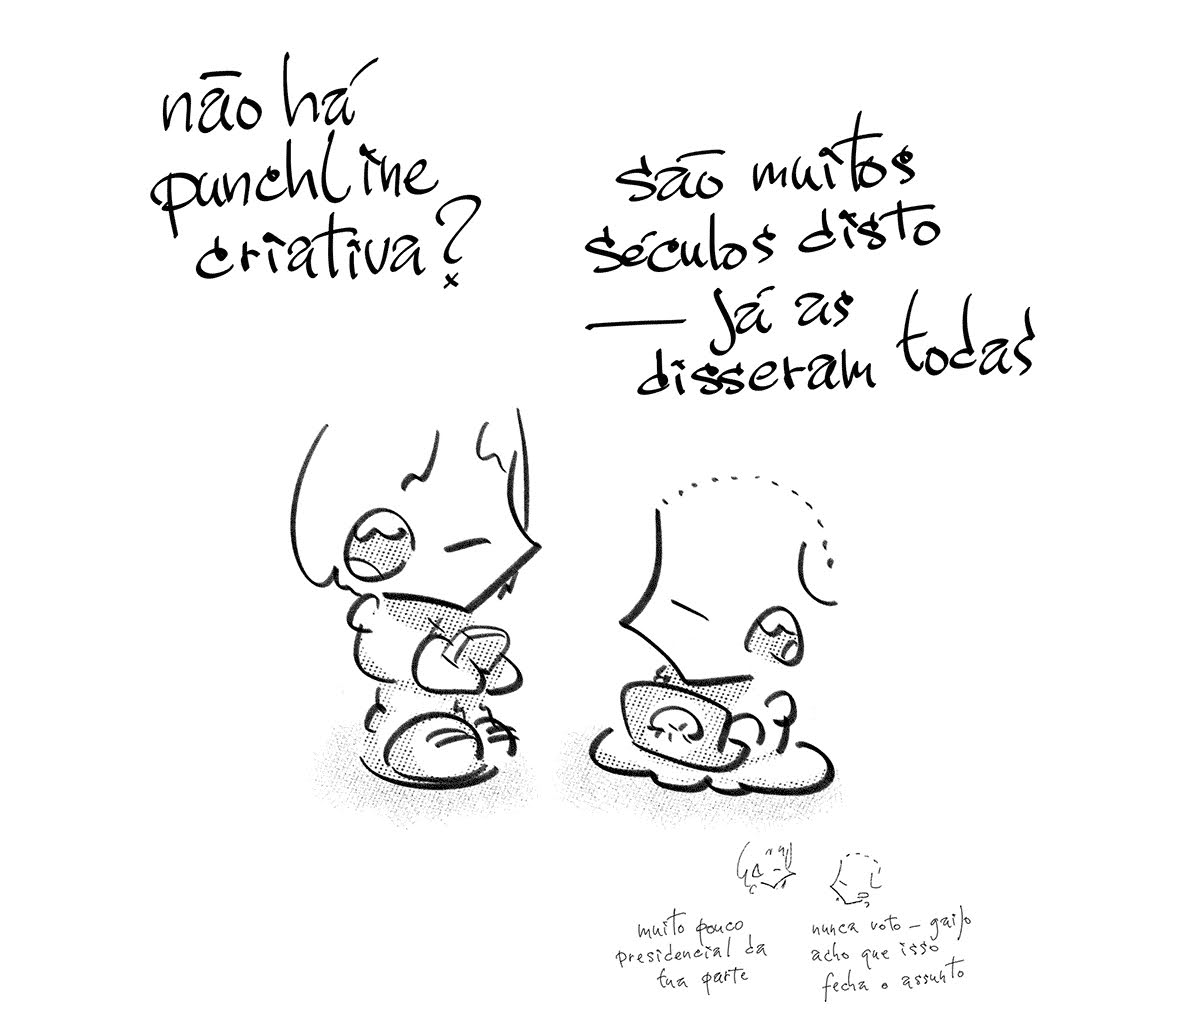 não há
punchline
criativa?
são muitos
séculos disto
— já as
disseram todas
muito pouco
presidencial da
tua parte
nunca voto — gaijo
acho que isso
fecha o assunto